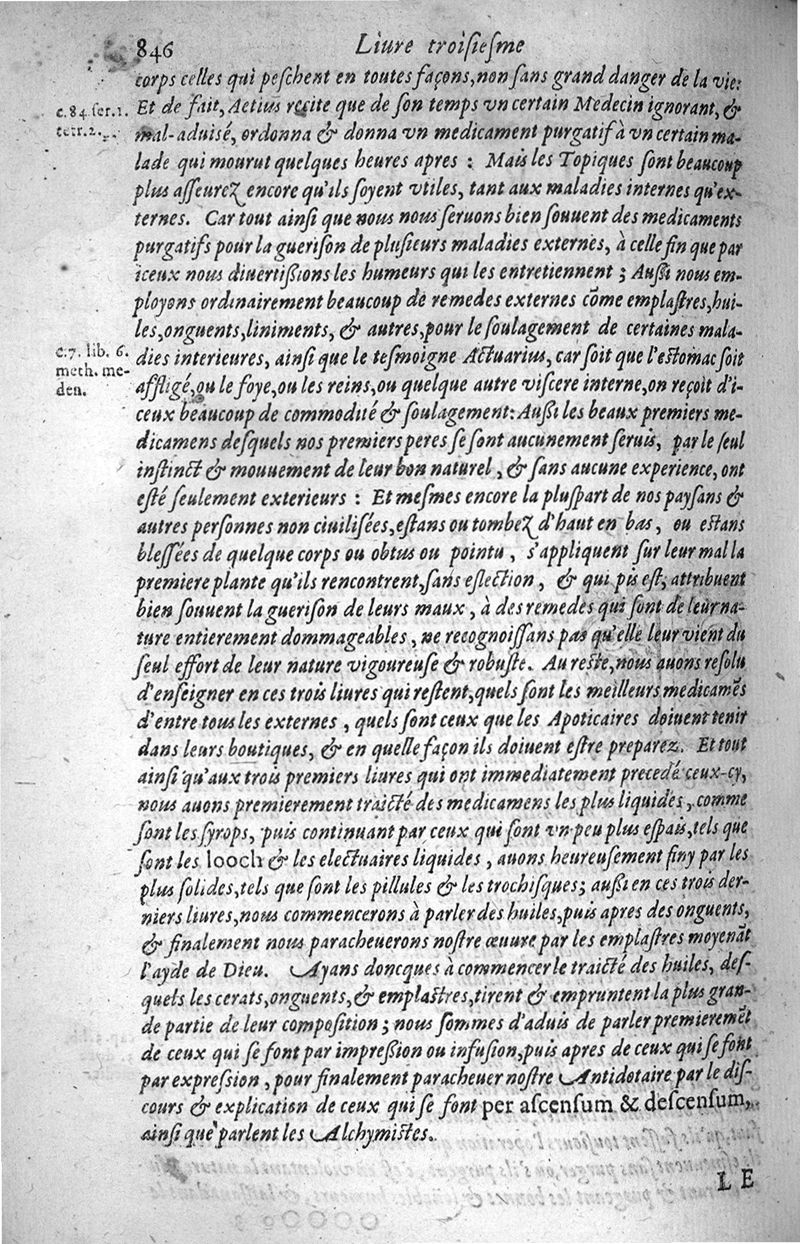 846 Liure troisiesme
corps celles qui peschent en toutes façons, non sans grand danger de la vie:
c. 84. ser. 1. Et de fait, Aetius recite que de son temps vn certain Medecin ignorant, &
tetr. 2. mal-aduisé, ordonna & donna vn medicament purgatif à vn certain ma-
lade qui mourut quelques heures apres : Mais les Topiques sont beaucoup
plus asseurez encore qu'ils soyent vtiles, tant aux maladies internes qu'ex-
ternes. Car tout ainsi que nous nous seruons bien souuent des medicaments
purgatifs pour la guerison de plusieurs maladies externes, à celle fin que par
iceux nous diuertissions les humeurs qui les entretiennent ; Aussi nous em-
ployons ordinairement beaucoup de remedes externes cõme emplastres, hui-
les, onguents, liniments, & autres, pour le soulagement de certaines mala-
c. 7. lib. 6. dies interieures, ainsi que le tesmoigne Actuarius, car soit que l'estomac soit
meth. me- affligé, ou le foye, ou les reins, ou quelque autre viscere interne, on reçoit d'i-
den. ceux beaucoup de commodité & soulagement: Aussi les beaux premiers me-
dicamens desquels nos premiers peres se sont aucunement seruis, par le seul
instinct & mouuement de leur bon naturel, & sans aucune experience, ont
esté seulement exterieurs : Et mesmes encore la pluspart de nos paysans &
autres personnes non ciuilisées, estans ou tombez d'haut en bas, ou estans
blessées de quelque corps ou obtus ou pointu, s'appliquent sur leur mal la
premiere plante qu'ils rencontrent, sans eslection, & qui pis est, attribuent
bien souuent la guerison de leurs maux, à des remedes qui sont de leur na-
ture entierement dommageables, ne recognoissans pas qu'elle leur vient du
seul effort de leur nature vigoureuse & robuste. Au reste, nous auons resolu
d'enseigner en ces trois liures qui restent, quels sont les meilleurs medicamẽs
d'entre tous les externes, quels sont ceux que les Apoticaires doiuent tenir
dans leurs boutiques, & en quelle façon ils doiuent estre preparez. Et tout
ainsi qu'aux trois premiers liures qui ont immediatement precedé ceux-cy,
nous auons premierement traicté des medicamens les plus liquides, comme
sont les syrops, puis continuant par ceux qui sont vn peu plus espais, tels que
sont les looch & les electuaires liquides, auons heureusement finy par les
plus solides, tels que sont les pillules & les trochisques; aussi en ces trois der-
niers liures, nous commencerons à parler des huiles, puis apres des onguents,
& finalement nous paracheuerons nostre œuure par les emplastres moyenãt
l'ayde de Dieu. Ayans doncques à commencer le traicté des huiles, des-
quels les cerats, onguents, & emplastres, tirent & empruntent la plus gran-
de partie de leur composition ; nous sommes d'aduis de parler premieremẽt
de ceux qui se font par impression ou infusion, puis apres de ceux qui se font
par expression, pour finalement paracheuer nostre Antidotaire par le dis-
cours & explication de ceux qui se font per ascensum & descensum,
ainsi que parlent les Alchymistes.
LE